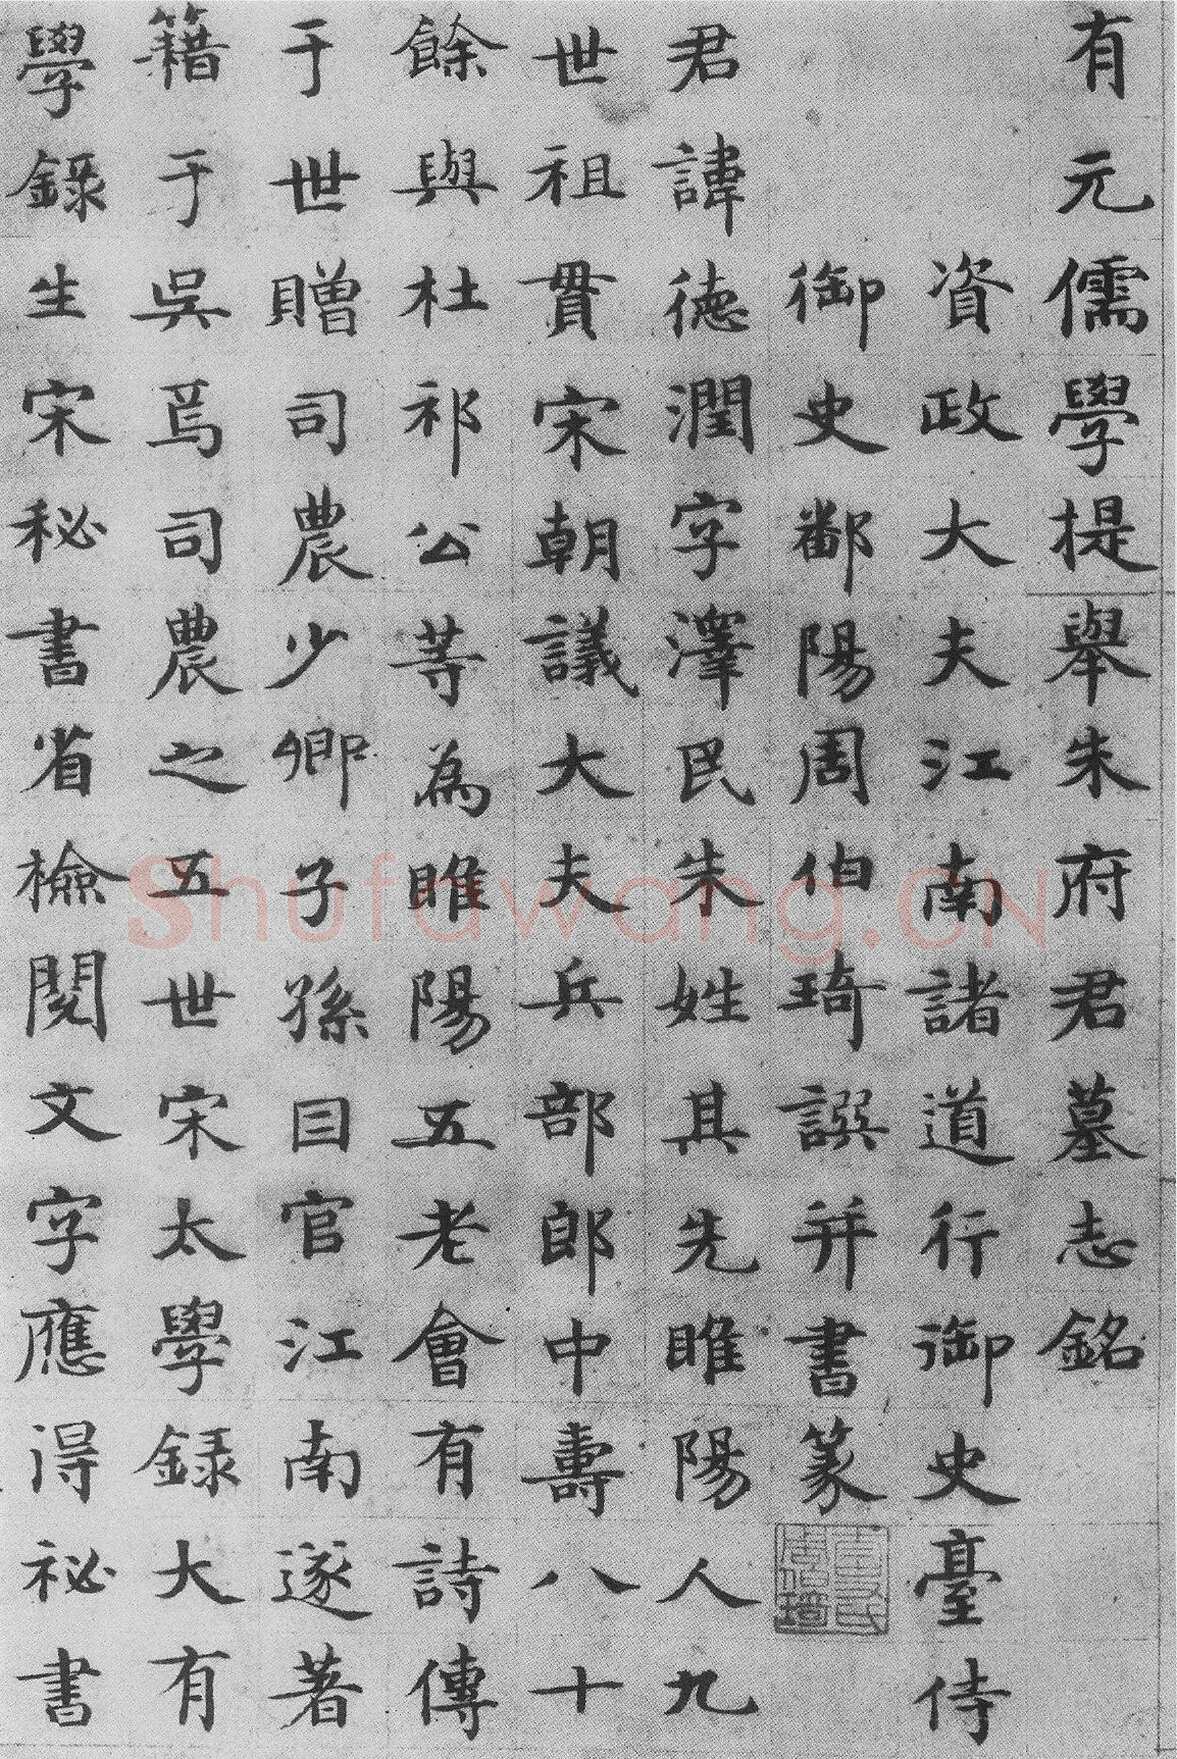 有元儒學提舉朱府君墓志銘
資政大夫江南諸道行御史臺侍
御史鄱陽周伯琦譔并書篆
君諱德潤字澤民朱姓其先睢陽人九
世祖貫宋朝議大夫兵部郎中壽八十
餘與杜祁公等為睢陽五老會有詩傳
于世贈司農少卿子孫因官江南遂著
籍于吳焉司農之五世宋太學録大有
學錄生宋秘書省檢閱文字應得祕書
Shufawang.CN